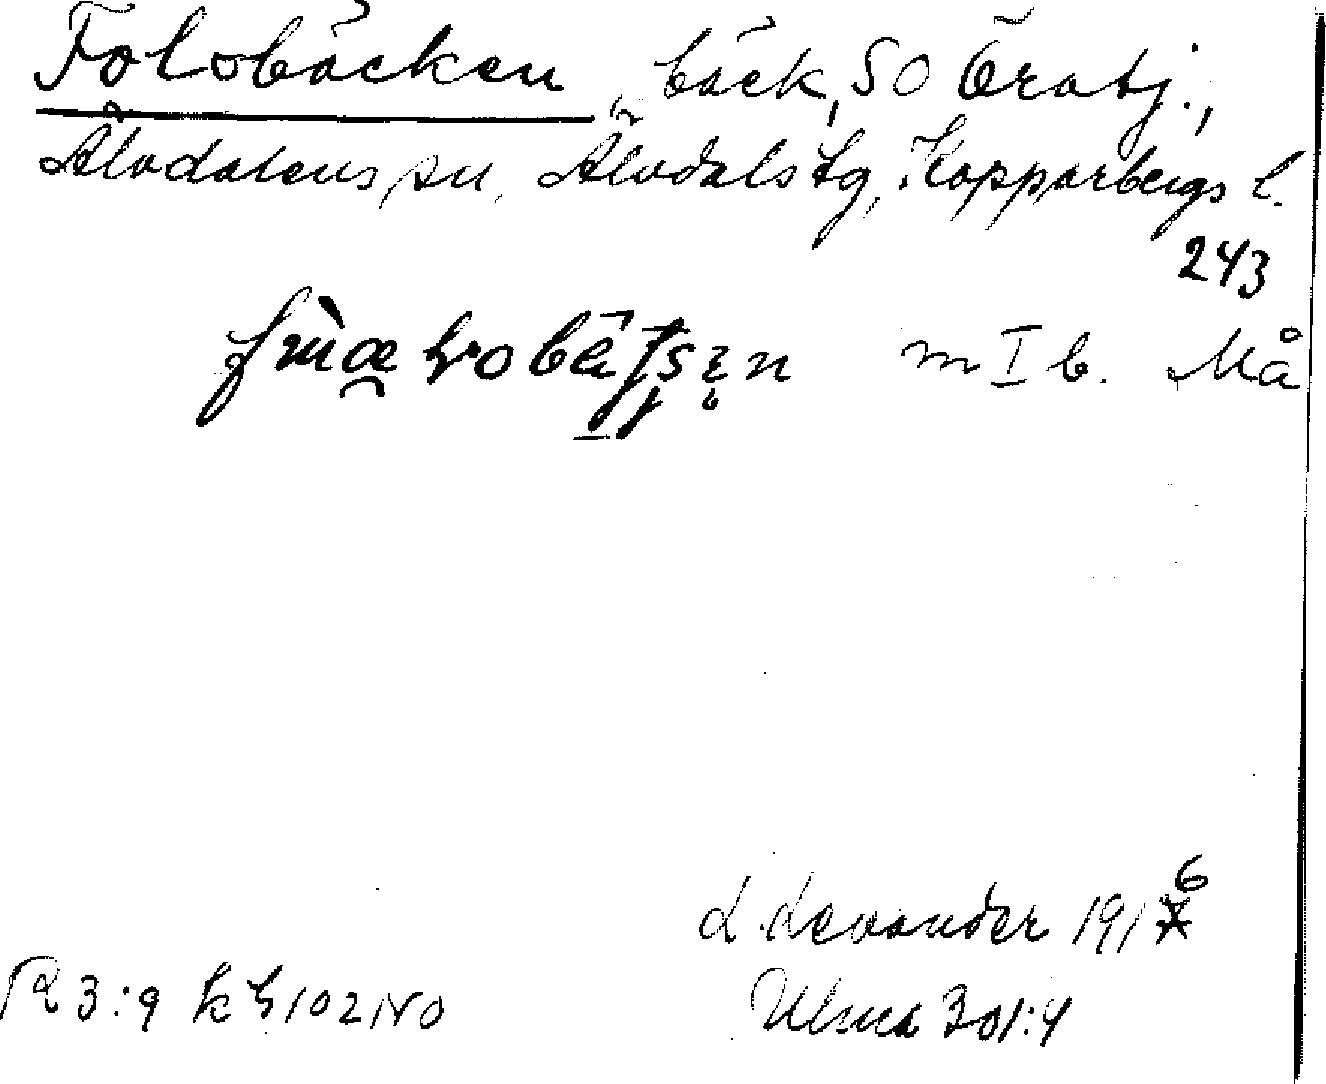 Folsbäcken, bäck, SO Öratj.,
Älvdalens sn, Älvdals tg, Kopparbergs l.
243
m I b. Må
L. Levander 1916
Ulma 301:4
R 3:9 k h 102 NO